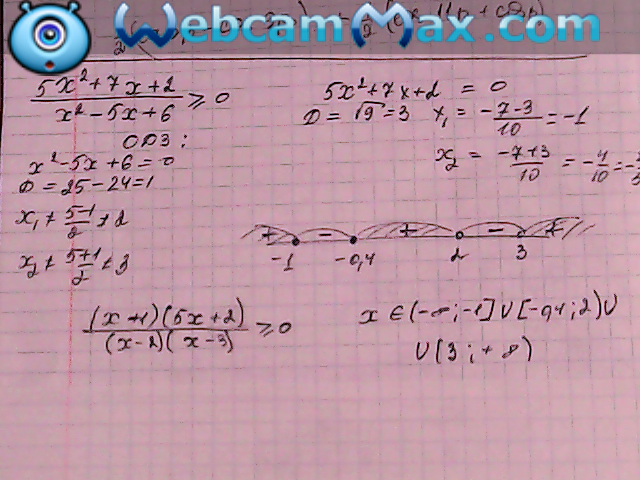 WebcamMax.com
5x²+7x+2 / x²-5x+6 ≥ 0
ОДЗ:
x²-5x+6=0
D=25-24=1
x₁ = 5-1/2 = 2
x₂ = 5+1/2 = 3
5x²+7x+2 = 0
D = √9 = 3 x₁ = -7-3/10 = -1
x₂ = -7+3/10 = -4/10 =
+ - + - +
-1 -0,4 2 3
(x+1)(5x+2) / (x-2)(x-3) ≥ 0
x ∈ (-∞; -1] ∪ [-0,4; 2) ∪
∪ (3; +∞)